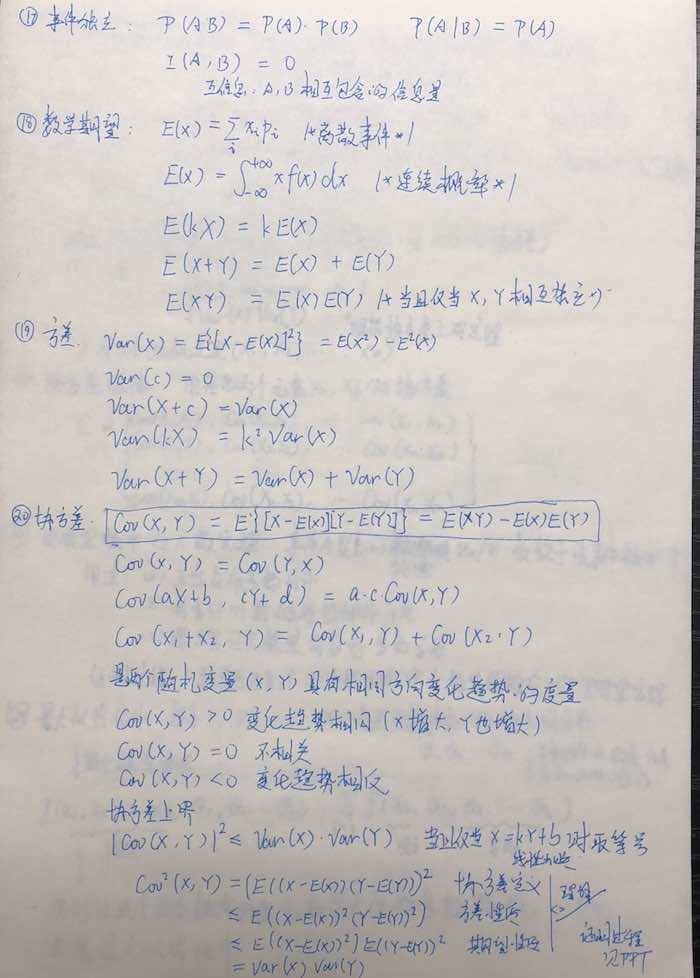 ⑰ 事件独立: P(AB) = P(A)·P(B)  P(A|B) = P(A)
I(A,B) = 0
互信息: A,B相互包含的信息量
⑱ 数学期望: E(x) = ∑_i x_i p_i /*离散事件*/
E(x) = ∫_{-∞}^{+∞} x f(x) dx /*连续概率*/
E(kX) = kE(X)
E(X+Y) = E(X) + E(Y)
E(XY) = E(X)E(Y) /*当且仅当X,Y相互独立*/
⑲ 方差. Var(x) = E{[X-E(X)]²} = E(x²) - E²(x)
Var(c) = 0
Var(X+c) = Var(X)
Var(kX) = k² Var(X)
Var(X+Y) = Var(X) + Var(Y)
⑳ 协方差. Cov(X,Y) = E{[X-E(X)][Y-E(Y)]} = E(XY) - E(X)E(Y)
Cov(X,Y) = Cov(Y,X)
Cov(aX+b, cY+d) = a·c Cov(X,Y)
Cov(X₁+X₂, Y) = Cov(X₁,Y) + Cov(X₂,Y)
是两个随机变量(X,Y)具有相同方向变化趋势的度量
Cov(X,Y) > 0 变化趋势相同(X增大,Y也增大)
Cov(X,Y) = 0 不相关
Cov(X,Y) < 0 变化趋势相反
协方差上界
|Cov(X,Y)|² ≤ Var(X)·Var(Y) 当且仅当X=kY+b时取等号
Cov²(X,Y) = (E((X-E(X))(Y-E(Y)))² 协方差定义
≤ E((X-E(X))²(Y-E(Y))²) 方差性质
≤ E((X-E(X))²)E((Y-E(Y))² 期望性质
= Var(X) Var(Y)
证明过程
见PPT